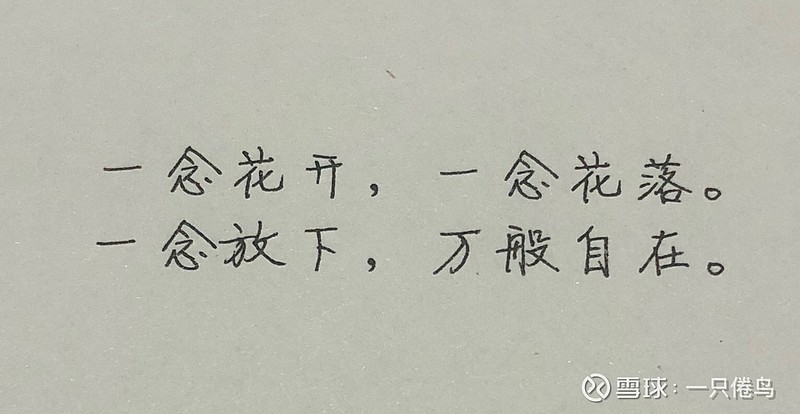 一念花开，一念花落。
一念放下，万般自在。
雪球：一只倦鸟